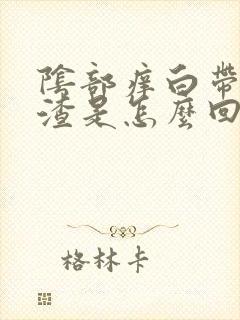 陰部痒白帶
渣是怎麼回
格林卡